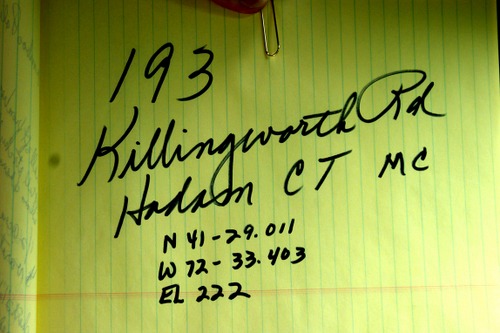 193
Killingworth Rd
Hadam CT MC
N 41-29.011
W 72-33.403
EL 222